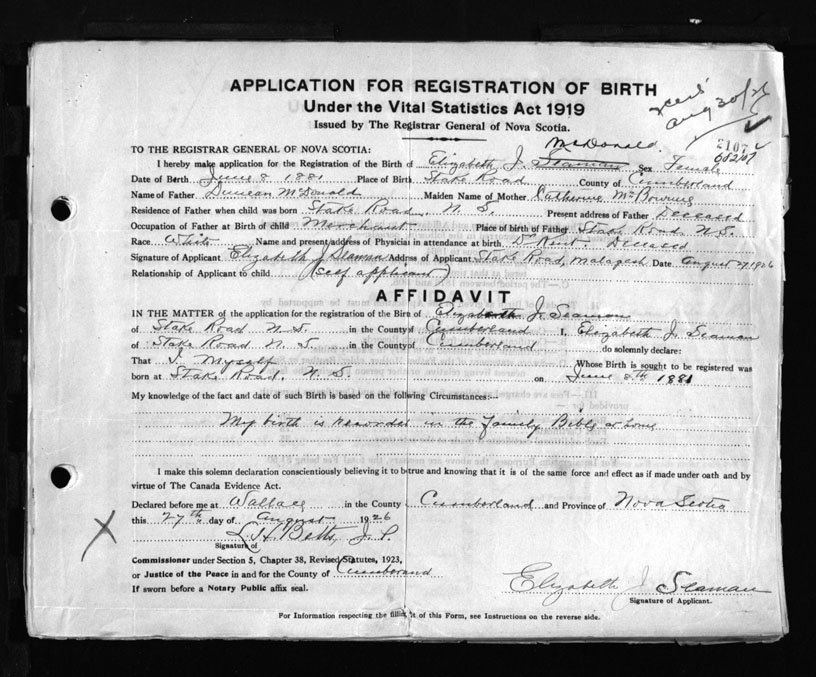 APPLICATION FOR REGISTRATION OF BIRTH
Under the Vital Statistics Act 1919
Issued by The Registrar General of Nova Scotia.
Aug 30/26
2107
McDonald
TO THE REGISTRAR GENERAL OF NOVA SCOTIA:
I hereby make application for the Registration of the Birth of Elizabeth J. Seaman Sex Female
Date of Birth June 8 1881 Place of Birth Stake Road County of Cumberland
Name of Father Duncan McDonald Maiden Name of Mother Catherine
Residence of Father when child was born Stake Road, N. S. Present address of Father Deceased
Occupation of Father at Birth of child Merchant Place of birth of Father Stake Road N.S.
Race White Name and present address of Physician in attendance at birth Dr Kent. Deceased
Signature of Applicant Elizabeth J Seaman Address of Applicant Stake Road, Malagash Date August 27 1926
Relationship of Applicant to child (self applicant)
AFFIDAVIT
IN THE MATTER of the application for the registration of the Birth of Elizabeth J. Seaman
of Stake Road N. S. in the County of Cumberland I, Elizabeth J. Seaman
of Stake Road N. S. in the County of Cumberland do solemnly declare:
That I Myself Whose Birth is sought to be registered was
born at Stake Road, N. S. on June 8th 1881
My knowledge of the fact and date of such Birth is based on the following Circumstances:—
My birth is recorded in the family Bible at home
I make this solemn declaration conscientiously believing it to be true and knowing that it is of the same force and effect as if made under oath and by
virtue of The Canada Evidence Act.
Declared before me at Wallace in the County Cumberland and Province of Nova Scotia
this 27th day of August 1926
L. H. Betts, J. P.
Signature of
Commissioner under Section 5, Chapter 38, Revised Statutes, 1923,
or Justice of the Peace in and for the County of Cumberland
If sworn before a Notary Public affix seal.
Elizabeth J. Seaman
Signature of Applicant.
For Information respecting the filling out of this Form, see Instructions on the reverse side.